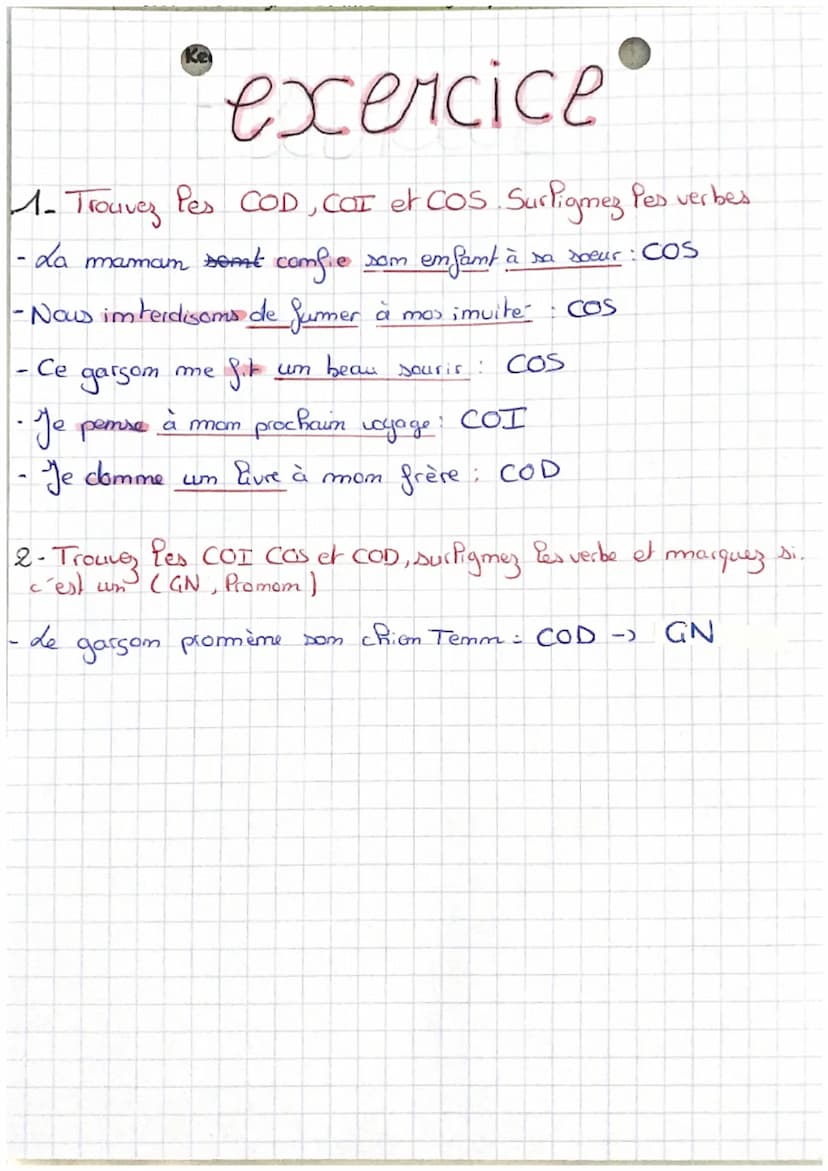 Ke
exercice
1- Trouvez les COD, COI et COS. Surlignez les verbes
- La maman sont confie son enfant à sa soeur : COS
- Nous interdisons de fumer à nos invite : COS
- Ce garson me fit un beau souris : COS
- Je pense à mon prochain voyage : COI
- Je donne un livre à mon frère : COD
2- Trouvez les COI COS et COD, surlignez les verbe et marquez si
c'est un (GN, Pronom)
- Le garson promème son chien Temm : COD -> GN